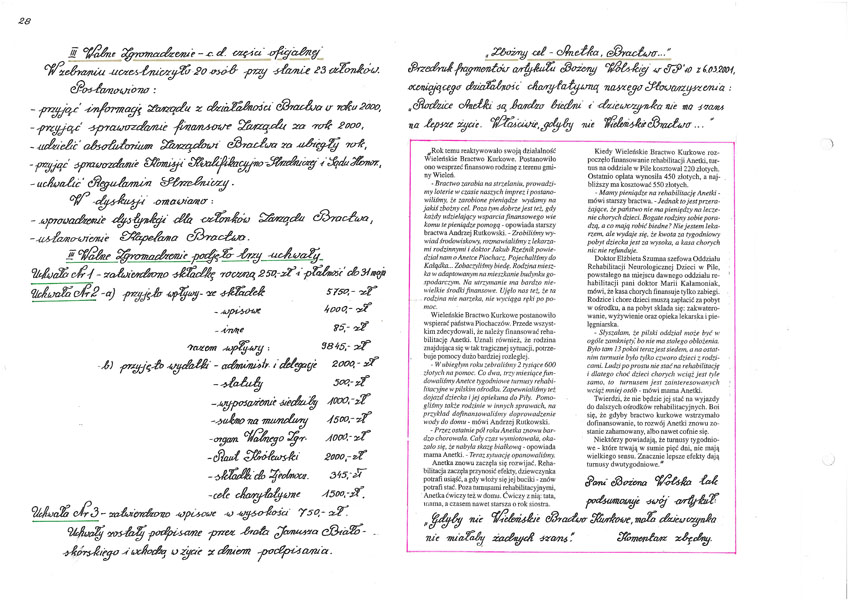 28
III Walne Zgromadzenie - c.d. części oficjalnej
W zebraniu uczestniczyło 20 osób przy stanie 23 członków.
Postanowiono :
- przyjąć informację Zarządu z działalności Bractwa w roku 2000,
- przyjąć sprawozdanie finansowe Zarządu za rok 2000,
- udzielić absolutorium Zarządowi Bractwa za ubiegły rok,
- przyjąć sprawozdanie Komisji Kwalifikacyjno-Strzeleckiej i Sądu Honor,
- uchwalić Regulamin Strzelniczy.
W dyskusji omawiano :
- wprowadzenie dystynkcji dla członków Zarządu Bractwa,
- ustanowienie Kapelana Bractwa.
III Walne Zgromadzenie podjęło trzy uchwały
Uchwała Nr 1 - zatwierdzono składkę roczną 250,-zł i płatność do 31 maja
Uchwała Nr 2 - a) przyjęto wpływy - ze składek 5750,- zł
- wpisowe 4000,- zł
- inne 85,- zł
razem wpływy : 9845,- zł
b) przyjęto wydatki - administr. i delegacje 2000,- zł
- statuty 500,- zł
- wyposażenie siedziby 1000,- zł
- sukno na mundury 1500,- zł
- organ. Walnego Zgr. 1000,- zł
- Raut Królewski 2000,- zł
- składki do Zjednocz. 345,- zł
- cele charytatywne 1500,- zł.
Uchwała Nr 3 - zatwierdzono wpisowe w wysokości 750,- zł.
Uchwały zostały podpisane przez brata Janusza Biało-
skórskiego i wchodzą w życie z dniem podpisania.
„Zbożny cel - Anetka, Bractwo..."
Przedruk fragmentów artykułu Bożeny Wolskiej w TP 10 z 6.03.2001,
oceniającego działalność charytatywną naszego Stowarzyszenia :
„Rodzice Anetki są bardzo biedni i dziewczynka nie ma szans
na lepsze życie. Właściwie, gdyby nie Wieleńskie Bractwo ..."
„Rok temu reaktywowało swoją działalność
Wieleńskie Bractwo Kurkowe. Postanowiło
ono wesprzeć finansowo rodzinę z terenu gmi-
ny Wieleń.
- Bractwo zarabia na strzelaniu, prowadzi-
my loterie w czasie naszych imprez i postano-
wiliśmy, że zarobione pieniądze wydamy na
jakiś zbożny cel. Poza tym dobrze jest też, gdy
każdy udzielający wsparcia finansowego wie
komu te pieniądze pomogą - opowiada starszy
bractwa Andrzej Rutkowski. - Zrobiliśmy wy-
wiad środowiskowy, rozmawialiśmy z lekarza-
mi rodzinnymi i doktor Jakub Rzeźnik powie-
dział nam o Anetce Piochacz. Pojechaliśmy do
Kałądka... Zobaczyliśmy biedę. Rodzina miesz-
ka w adaptowanym na mieszkanie budynku go-
spodarczym. Na utrzymanie ma bardzo nie-
wielkie środki finansowe. Ujęło nas też, że ta
rodzina nie narzeka, nie wyciąga ręki po po-
moc.
Wieleńskie Bractwo Kurkowe postanowiło
wspierać państwa Piochaczów. Przede wszyst-
kim zdecydowali, że należy finansować reha-
bilitację Anetki. Uznali również, że rodzina
znajdująca się w tak tragicznej sytuacji, potrze-
buje pomocy dużo bardziej rozległej.
- W ubiegłym roku zebraliśmy 2 tysiące 600
złotych na pomoc. Co dwa, trzy miesiące fun-
dowaliśmy Anetce tygodniowe turnusy rehabi-
litacyjne w pilskim ośrodku. Zapewnialiśmy też
dojazd dziecka i jej opiekuna do Piły. Pomo-
gliśmy także rodzinie w innych sprawach, na
przykład dofinansowaliśmy doprowadzenie
wody do domu - mówi Andrzej Rutkowski.
- Przez ostatnie pół roku Anetka znowu bar-
dzo chorowała. Cały czas wymiotowała, oka-
zało się, że nabyła skazę białkową - opowiada
mama Anetki. - Teraz sytuację opanowaliśmy.
Anetka znowu zaczęła się rozwijać. Reha-
bilitacja zaczęła przynosić efekty, dziewczynka
potrafi usiąść, a gdy włoży się jej buciki - znów
potrafi stać. Poza turnusami rehabilitacyjnymi,
Anetka ćwiczy też w domu. Ćwiczy z nią: tata,
mama, a czasem nawet starsza o rok siostra.
Kiedy Wieleńskie Bractwo Kurkowe roz-
poczęło finansowanie rehabilitacji Anetki, tur-
nus na oddziale w Pile kosztował 220 złotych.
Ostatnio opłata wynosiła 450 złotych, a naj-
bliższy ma kosztować 550 złotych.
- Mamy pieniądze na rehabilitację Anetki -
mówi starszy bractwa. - Jednak to jest przera-
żające, że państwo nie ma pieniędzy na lecze-
nie chorych dzieci. Bogate rodziny sobie pora-
dzą, a co mają robić biedne? Nie jestem leka-
rzem, ale wydaje się, że kwota za tygodniowy
pobyt dziecka jest za wysoka, a kasa chorych
nic nie refunduje.
Doktor Elżbieta Szumna szefowa Oddziału
Rehabilitacji Neurologicznej Dzieci w Pile,
powstałego na miejscu dawnego oddziału re-
habilitacji pani doktor Marii Kałamoniak,
mówi, że kasa chorych finansuje tylko zabiegi.
Rodzice i chore dzieci muszą zapłacić za pobyt
w ośrodku, a na pobyt składa się: zakwatero-
wanie, wyżywienie oraz opieka lekarska i pie-
lęgniarska.
- Słyszałam, że pilski oddział może być w
ogóle zamknięty, bo nie ma stałego obłożenia.
Było tam 13 pokoi teraz jest siedem, a na ostat-
nim turnusie było tylko czworo dzieci z rodzi-
cami. Ludzi po prostu nie stać na rehabilitację
i dlatego choć dzieci chorych wciąż jest tyle
samo, to turnusem jest zainteresowanych
wciąż mniej osób - mówi mama Anetki.
Twierdzi, że nie będzie jej stać na wyjazdy
do dalszych ośrodków rehabilitacyjnych. Boi
się, że gdyby bractwo kurkowe wstrzymało
dofinansowanie, to rozwój Anetki znowu zo-
stanie zahamowany, albo nawet cofnie się.
Niektórzy powiadają, że turnusy tygodnio-
we - które trwają w sumie pięć dni, nie mają
wielkiego sensu. Znacznie lepsze efekty dają
turnusy dwutygodniowe."
Pani Bożena Wolska tak
podsumowuje swój artykuł:
„Gdyby nie Wieleńskie Bractwo Kurkowe, mała dziewczynka
nie miałaby żadnych szans". Komentarz zbędny.